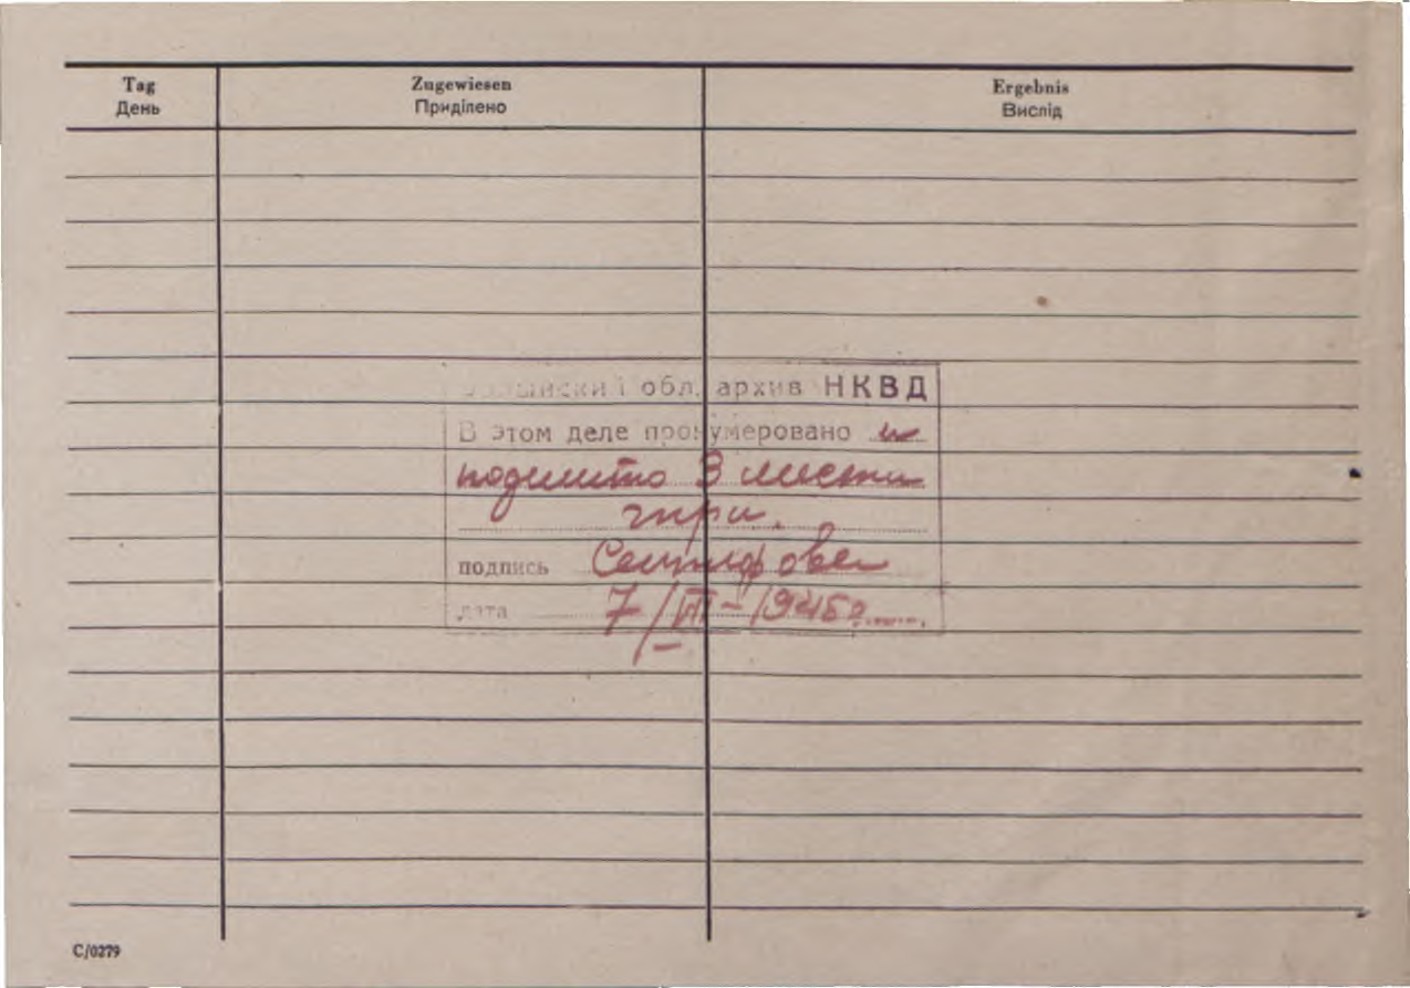 Tag
День
Zugewiesen
Приділено
Ergebnis
Вислід
обл. архив НКВД
В этом деле пронумеровано и
подшито 3 листа
подпись
дата 7/III-1945г.
C/0279